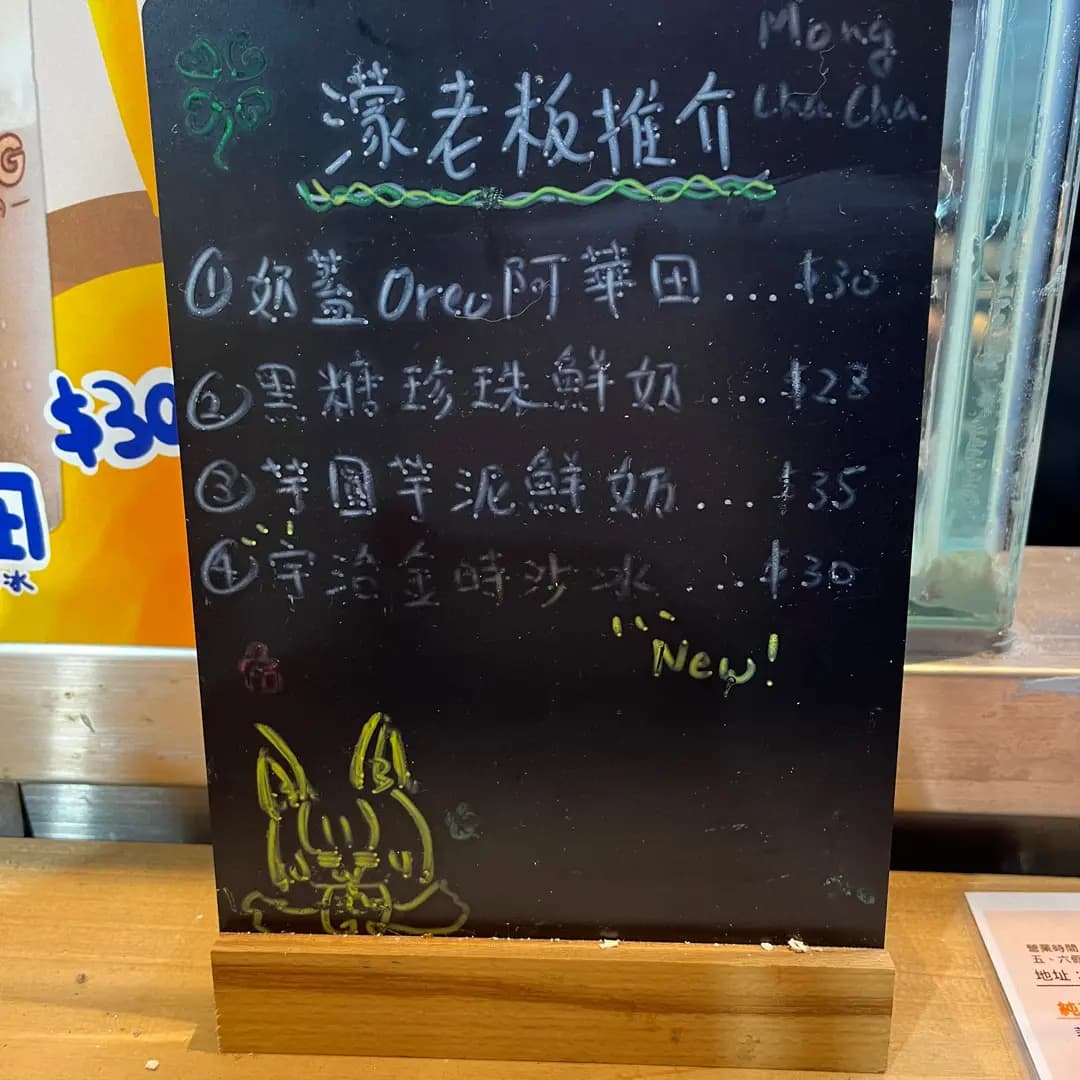 Mong
Cha Cha
濛老板推介
① 奶蓋Oreo阿華田 ... $30
② 黑糖珍珠鮮奶 .... $28
③ 芋圓芋泥鮮奶 ... $35
④ 宇治金時沙冰 ... $30
New!
$30
田
冰
G
營業時間
五、六
地址：
純